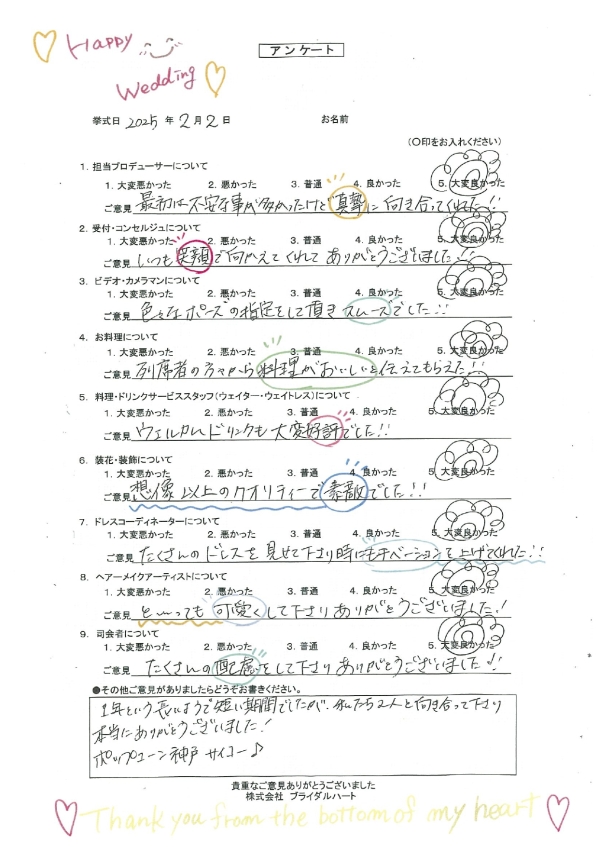 Happy
Wedding
アンケート
挙式日 2025 年 2 月 2 日 お名前
(〇印をお入れください)
1. 担当プロデューサーについて
1. 大変悪かった 2. 悪かった 3. 普通 4. 良かった 5. 大変良かった
ご意見 最初は不安な事が多かったけど真摯に向き合ってくれた!!
2. 受付・コンセルジュについて
1. 大変悪かった 2. 悪かった 3. 普通 4. 良かった 5. 大変良かった
ご意見 いつも笑顔で向かえてくれて ありがとうございました!!
3. ビデオ・カメラマンについて
1. 大変悪かった 2. 悪かった 3. 普通 4. 良かった 5. 大変良かった
ご意見 色々なポーズの指定をして頂きスムーズでした!!
4. お料理について
1. 大変悪かった 2. 悪かった 3. 普通 4. 良かった 5. 大変良かった
ご意見 列席者の方々から料理がおいしいと伝えてもらえた!!
5. 料理・ドリンクサービススタッフ(ウェイター・ウェイトレス)について
1. 大変悪かった 2. 悪かった 3. 普通 4. 良かった 5. 大変良かった
ご意見 ウェルカムドリンクも大変好評でした!!
6. 装花・装飾について
1. 大変悪かった 2. 悪かった 3. 普通 4. 良かった 5. 大変良かった
ご意見 想像以上のクオリティーで素敵でした!!
7. ドレスコーディネーターについて
1. 大変悪かった 2. 悪かった 3. 普通 4. 良かった 5. 大変良かった
ご意見 たくさんのドレスを見せて下さり時にモチベーションを上げてくれた!!
8. ヘアーメイクアーティストについて
1. 大変悪かった 2. 悪かった 3. 普通 4. 良かった 5. 大変良かった
ご意見 と〜っても可愛くして下さりありがとうございました!
9. 司会者について
1. 大変悪かった 2. 悪かった 3. 普通 4. 良かった 5. 大変良かった
ご意見 たくさんの配慮をして下さりありがとうございました!!
●その他ご意見がありましたらどうぞお書きください。
1年という長いようで短い期間でしたが、私たち2人と向き合って下さり
本当にありがとうございました!
ポップコーン神戸 サイコー♪
貴重なご意見ありがとうございました
株式会社 ブライダルハート
Thank you from the bottom of my heart